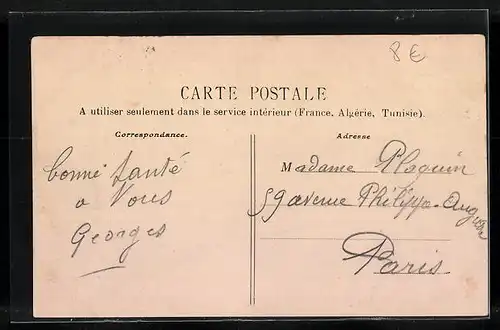 8 €
CARTE POSTALE
A utiliser seulement dans le service intérieur (France, Algérie, Tunisie).
Correspondance.
Adresse
bonne santé
a Vous
Georges
Madame Plaquin
59 avenue Philippe-Auguste
Paris